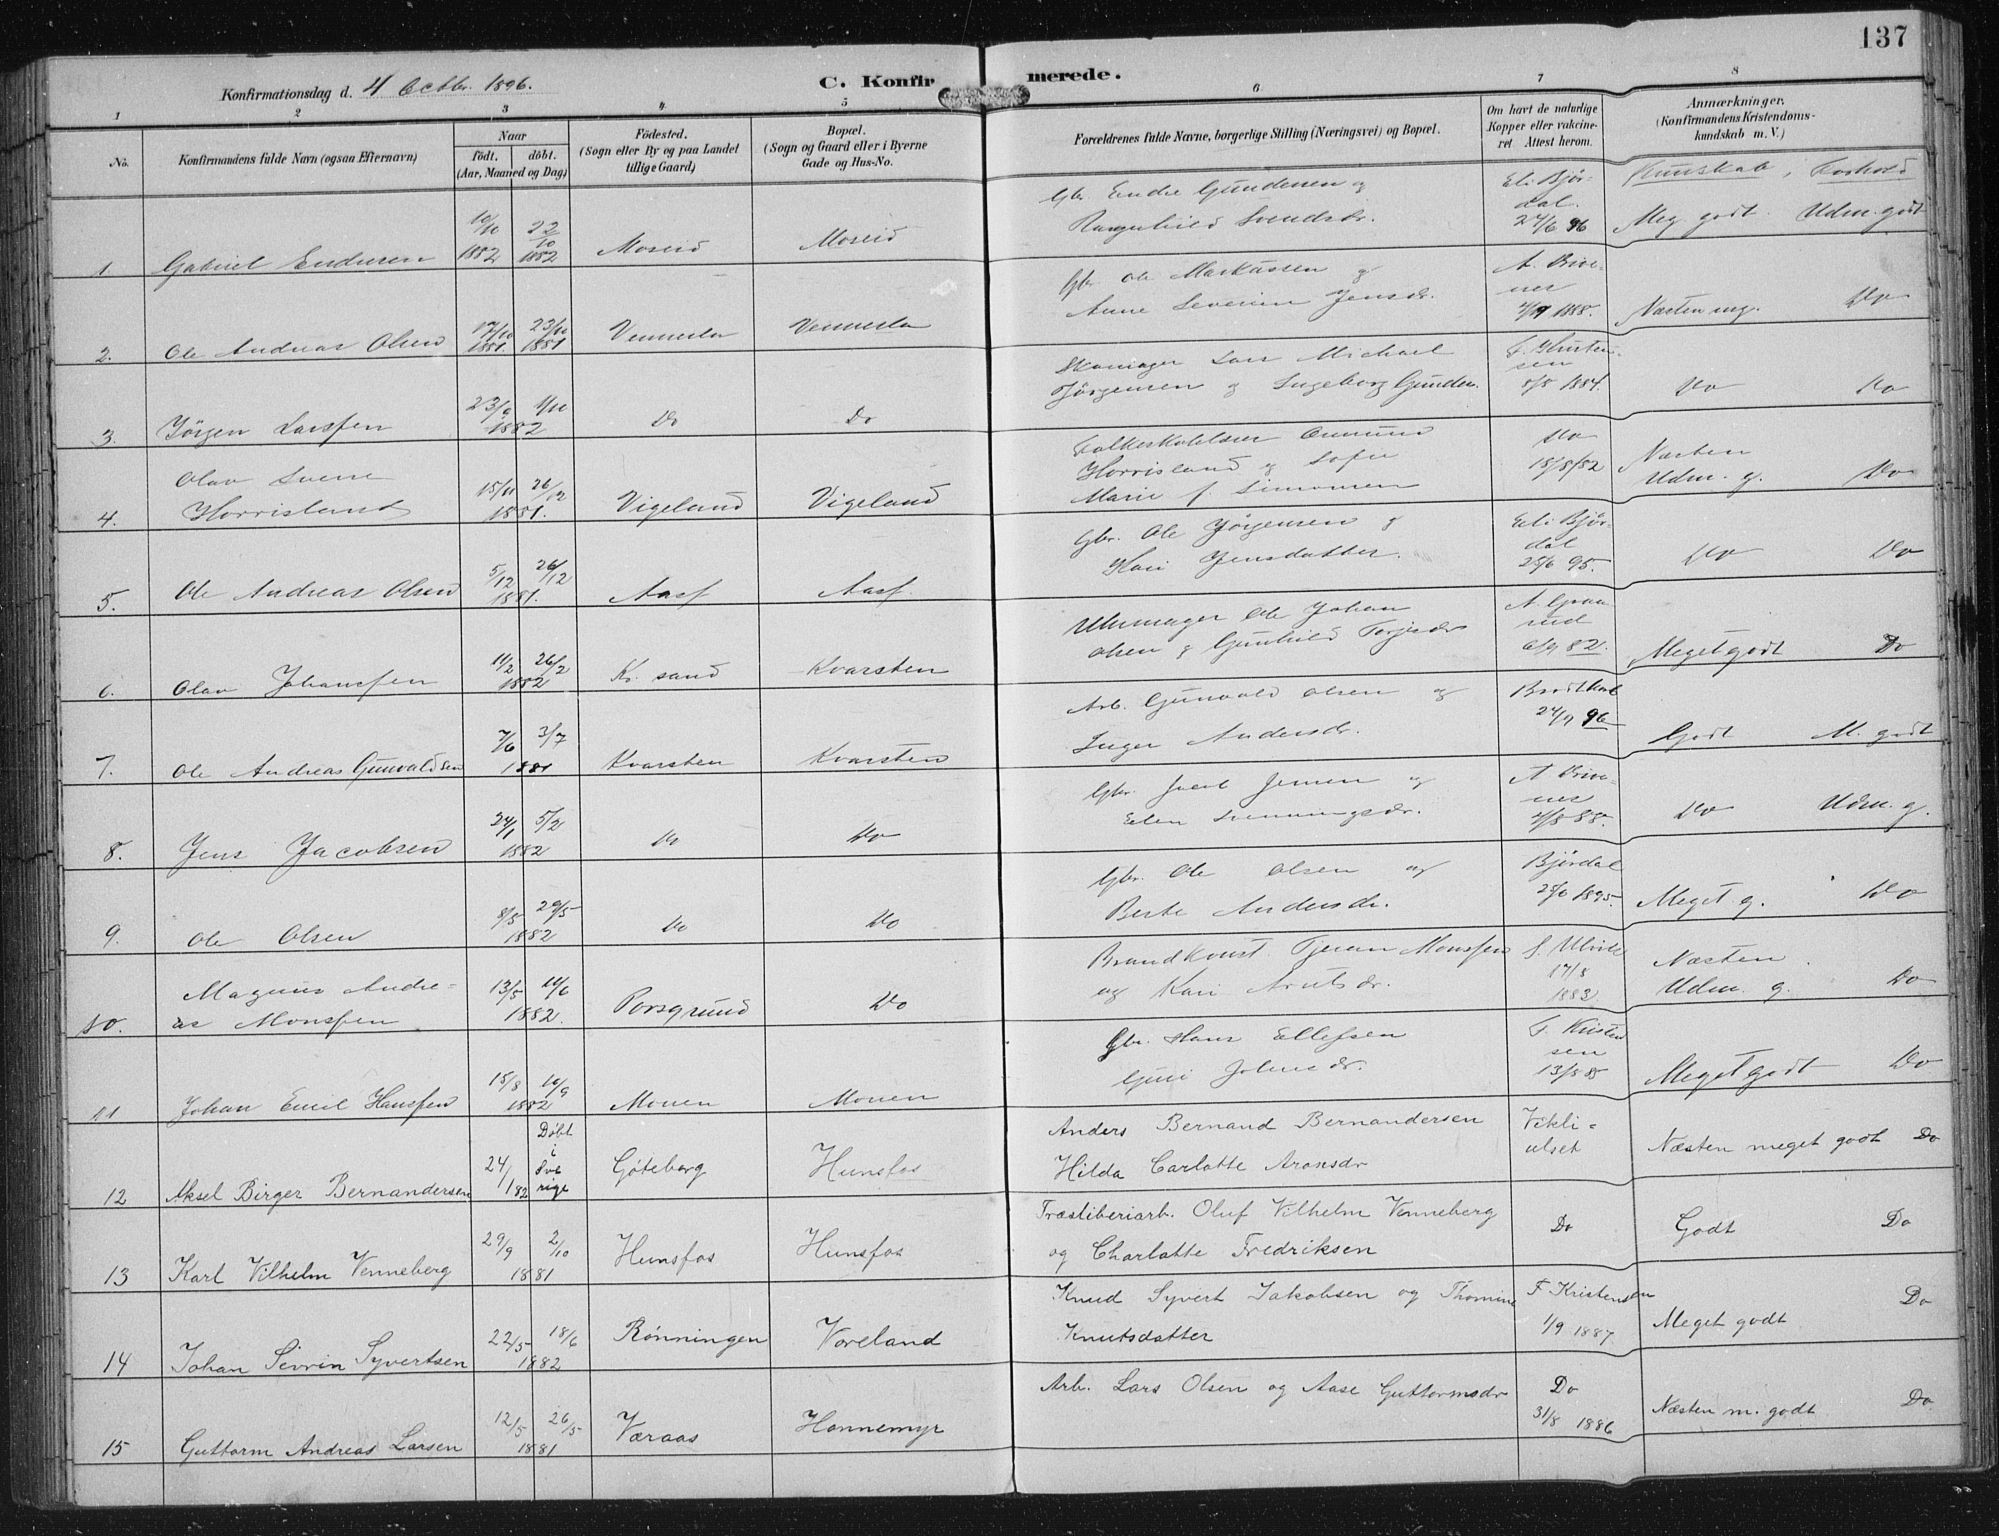 137
Konfirmationsdag d. 4 Octbr. 1896.
C. Konfirmerede.
1 2 3 4 5 6 7 8
No.
Konfirmandens fulde Navn (ogsaa Efternavn)
Naar
født. døbt.
(Aar, Maaned og Dag)
Fødested.
(Sogn eller By og paa Landet
tillige Gaard)
Bopæl.
(Sogn og Gaard eller i Byerne
Gade og Hus-No.
Forældrenes fulde Navne, borgerlige Stilling (Næringsvei) og Bopæl.
Om havt de naturlige
Kopper eller vakcine-
ret Attest herom.
Anmærkninger.
(Konfirmandens Kristendoms-
kundskab m. V.)
Kunskab, Forhold
1. Gabriel Endresen 10/10 1882 22/10 1882 Moseid Moseid
Gbr. Endre Gundersen og
Ragnhild Svendsdr.
Eli Bjør-
dal.
24/6 96
Meg. godt. Udm. godt
2. Ole Andreas Olsen 17/10 1881. 23/10 1881 Vennesla Vennesla
Gbr. Ole Markussen og
Anne Severine Jensdr.
A. Drive-
nes
1888.
Næsten mg. Do
3. Jörgen Larssen 23/9 1/10 1882 Do Do
Skomager Lars Michael
Jörgensen og Ingeborg Gundersdr.
F. Kristen-
sen
8/8 1884.
Do Do
4. Olav Sverre
Horrisland 15/11 26/12 1881. Vigeland Vigeland
Folkeskolelærer Omund
Horrisland og Sofie
Marie f. Simonsen
Do
18/8/82
Næsten
Udm. g. Do
5. Ole Andreas Olsen 5/12 26/12 1881. Aas Aas
Gbr. Ole Jörgensen og
Kari Jensdatter.
Eli Bjør-
dal
25/6 95.
Do Do
6. Olav Johanssen 11/2 26/2 1882 Kr. sand Kvarsten
Uhrmager Ole Johan
Olsen og Gunhild Torjusdr
6/9 82.
Meget godt Do
7. Ole Andreas Gunvaldsen 7/6 3/7 1881 Kvarsten Kvarsten
Arb. Gunvald Olsen og
Inger Andersdr.
24/9 96
Godt M. godt
8. Jens Jacobsen 24/1 5/2 1882 Do Do
Gbr. Jensen og
Elen Svenningsdr.
A Drive-
nes
4/8 88.
Do Udm. g.
9. Ole Olsen 8/5 29/5 1882 Do Do
Gbr. Ole Olsen og
Berte Andersdr.
Bjørdal
25/6 1895.
Meget g. Do
10. Magnus Andre-
as Monssen 13/5 11/6 1882. Porsgrund Do
Brandkonst. Tjeran Monssen
og Kari Arntsdr.
17/8
1883
Næsten
Udm. g. Do
11 Johan Emil Hanssen 15/8 10/9 1882 Mouen Mouen
Gbr. Hans Ellefsen
Guri Johnsdr.
F. Kristen
sen
13/8 85
Meget godt Do
12 Aksel Birger Bernandersen 24/1 82 Døbt
i
Sve
rige Göteborg Hunsfos
Anders Bernand Bernandersen
Hilda Carlotte Aronsdr
Vekli-
ulset
Næsten meget godt Do
13 Karl Vilhelm Venneberg 29/9 2/10 1881 Hunsfos Hunsfos
Træsliberiarb. Oluf Vilhelm Venneberg
og Charlotte Fredriksen
Do
Godt Do
14 Johan Sivrin Syvertsen 22/5 18/6 1882 Rönningen Voreland
Knud Syvert Jakobsen og Thomine
Knutsdatter
F Kristensen
1/9 1887
Meget godt Do
15 Guttorm Andreas Larsen 12/5 26/5 1881 Væraas Honnemyr
Arb. Lars Olsen og Aase Guttormsdr
Do
31/8 1886
Næsten m. godt Do